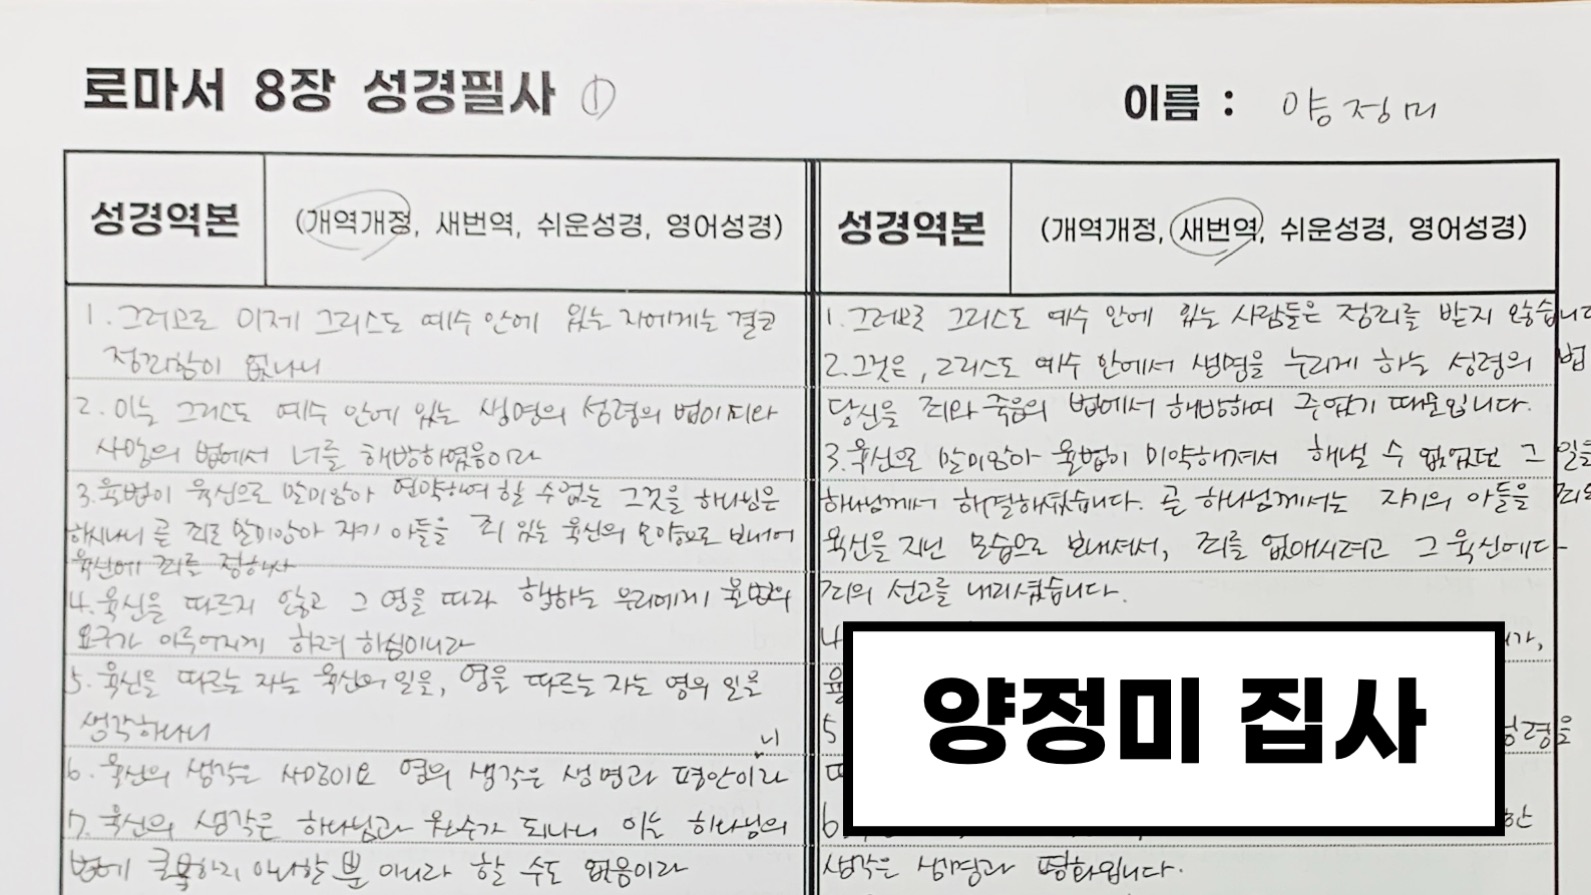 로마서 8장 성경필사 ①
이름 : 양정미
성경역본 (개역개정, 새번역, 쉬운성경, 영어성경)
1. 그러므로 이제 그리스도 예수 안에 있는 자에게는 결코
정죄함이 없나니
2. 이는 그리스도 예수 안에 있는 생명의 성령의 법이 죄와
사망의 법에서 너를 해방하였음이라
3. 율법이 육신으로 말미암아 연약하여 할 수 없는 그것을 하나님은
하시나니 곧 죄로 말미암아 자기 아들을 죄 있는 육신의 모양으로 보내어
육신에 죄를 정하사
4. 육신을 따르지 않고 그 영을 따라 행하는 우리에게 율법의
요구가 이루어지게 하려 하심이니라
5. 육신을 따르는 자는 육신의 일을, 영을 따르는 자는 영의 일을
생각하나니
니
6. 육신의 생각은 사망이요 영의 생각은 생명과 평안이라
7. 육신의 생각은 하나님과 원수가 되나니 이는 하나님의
법에 굴복하지 아니할 뿐 아니라 할 수도 없음이라
성경역본 (개역개정, 새번역, 쉬운성경, 영어성경)
1. 그러므로 그리스도 예수 안에 있는 사람들은 정죄를 받지 않습니다
2. 그것은, 그리스도 예수 안에서 생명을 누리게 하는 성령의 법
당신을 죄와 죽음의 법에서 해방하여 주었기 때문입니다.
3. 육신으로 말미암아 율법이 미약해져서 해낼 수 없었던 그 일을
하나님께서 해결해주셨습니다. 곧 하나님께서는 자기의 아들을 죄의
육신을 지닌 모습으로 보내셔서, 죄를 없애시려고 그 육신에다
죄의 선고를 내리셨습니다.
4 가,
육
5 성령을
따
6 한
생각은 생명과 평화입니다.
양정미 집사